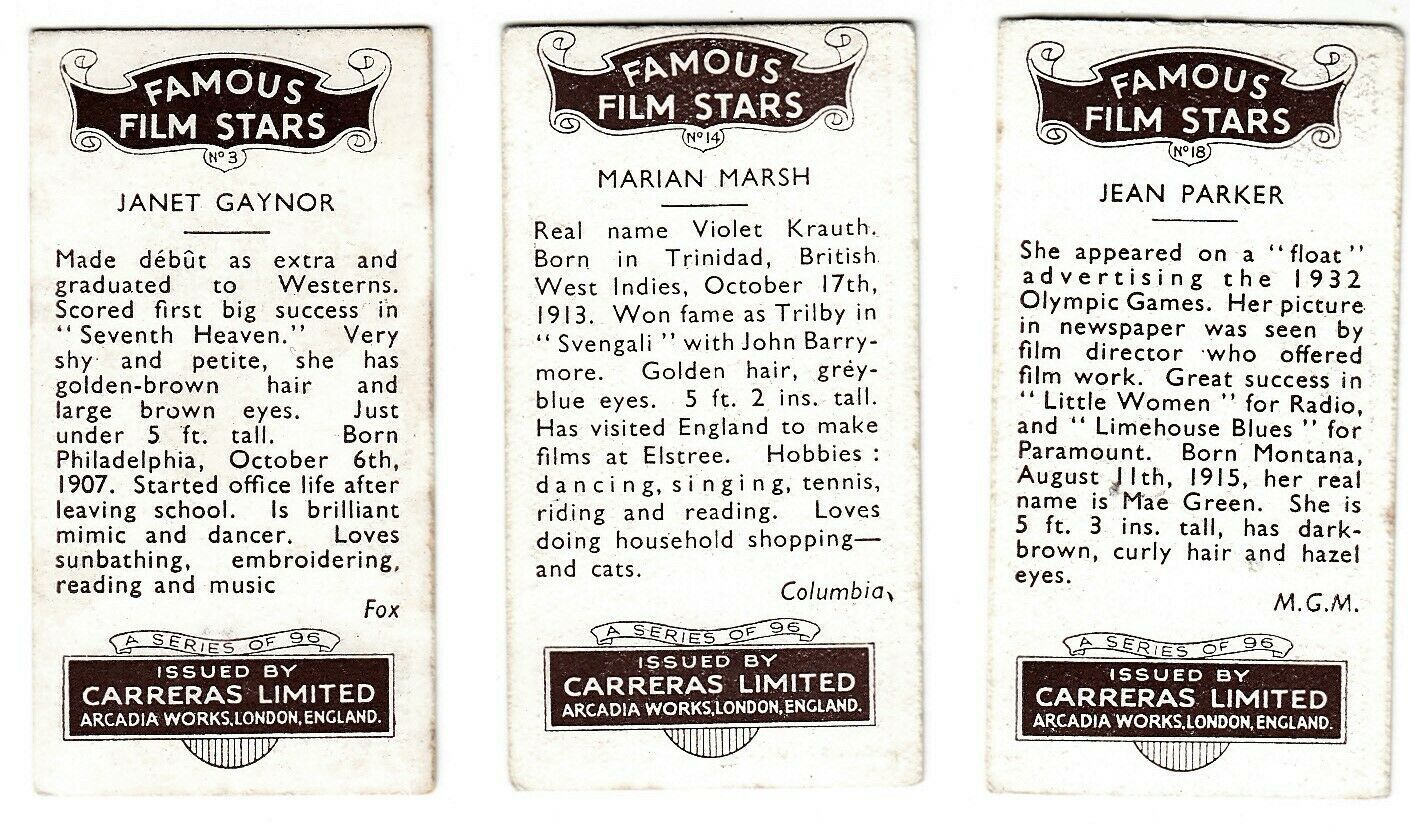 FAMOUS
FILM STARS
Nº 3
JANET GAYNOR
Made début as extra and
graduated to Westerns.
Scored first big success in
"Seventh Heaven." Very
shy and petite, she has
golden-brown hair and
large brown eyes. Just
under 5 ft. tall. Born
Philadelphia, October 6th,
1907. Started office life after
leaving school. Is brilliant
mimic and dancer. Loves
sunbathing, embroidering,
reading and music
Fox
A SERIES OF 96
ISSUED BY
CARRERAS LIMITED
ARCADIA WORKS, LONDON, ENGLAND.
FAMOUS
FILM STARS
Nº 14
MARIAN MARSH
Real name Violet Krauth.
Born in Trinidad, British
West Indies, October 17th,
1913. Won fame as Trilby in
"Svengali" with John Barry-
more. Golden hair, grey-
blue eyes. 5 ft. 2 ins. tall.
Has visited England to make
films at Elstree. Hobbies :
dancing, singing, tennis,
riding and reading. Loves
doing household shopping—
and cats.
Columbia
A SERIES OF 96
ISSUED BY
CARRERAS LIMITED
ARCADIA WORKS, LONDON, ENGLAND.
FAMOUS
FILM STARS
Nº 18
JEAN PARKER
She appeared on a "float"
advertising the 1932
Olympic Games. Her picture
in newspaper was seen by
film director who offered
film work. Great success in
"Little Women" for Radio,
and "Limehouse Blues" for
Paramount. Born Montana,
August 11th, 1915, her real
name is Mae Green. She is
5 ft. 3 ins. tall, has dark-
brown, curly hair and hazel
eyes.
M.G.M.
A SERIES OF 96
ISSUED BY
CARRERAS LIMITED
ARCADIA WORKS, LONDON, ENGLAND.